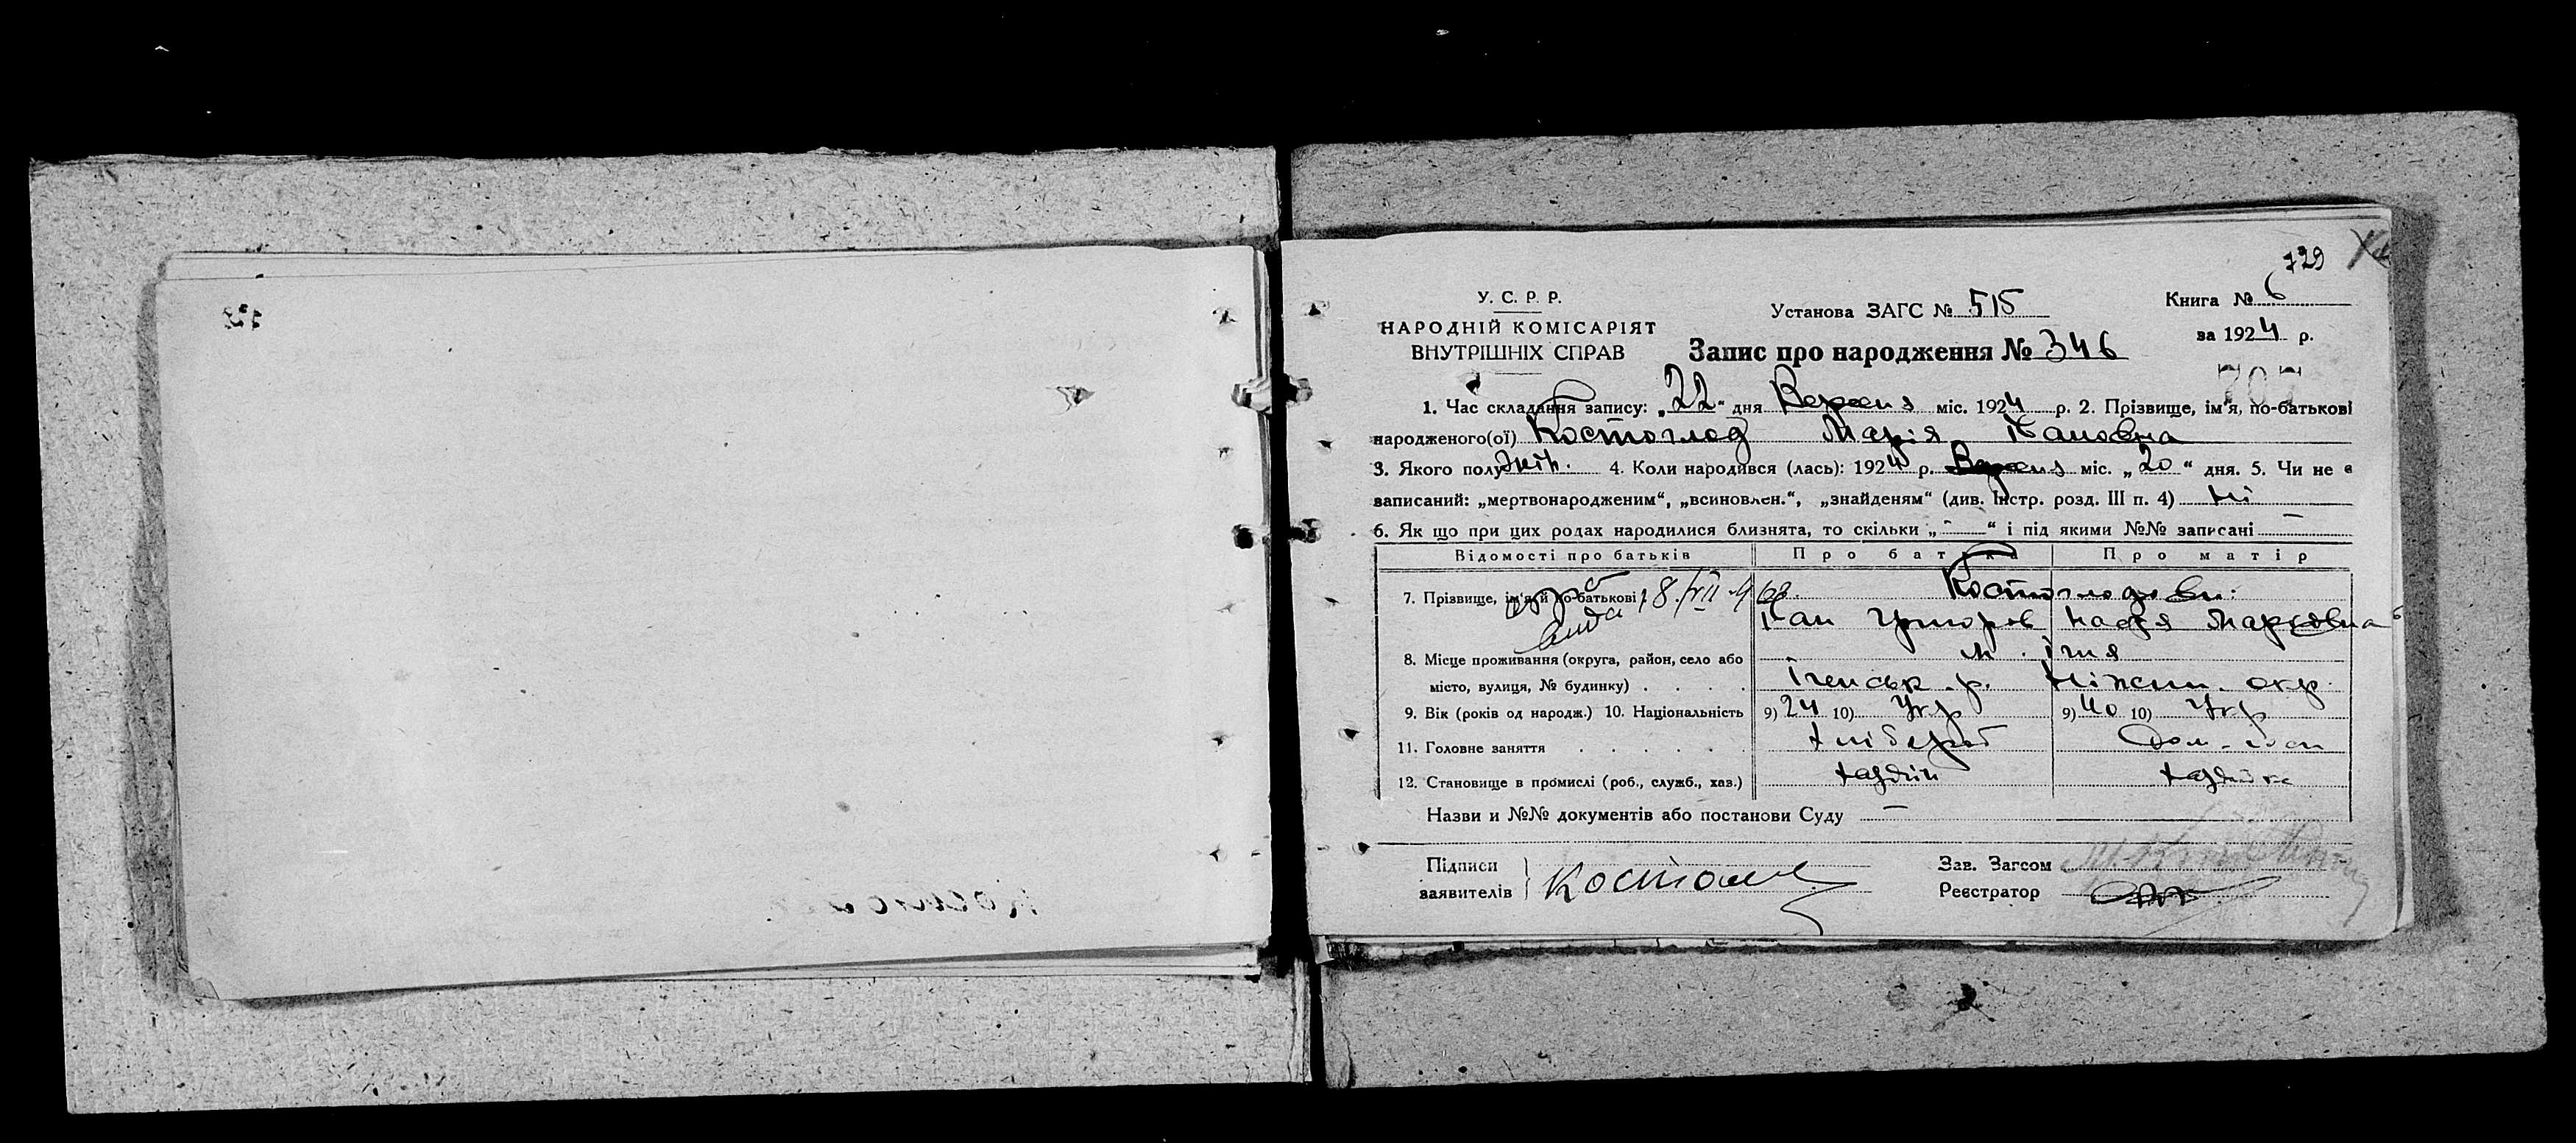 729
У. С. Р. Р.
НАРОДНІЙ КОМІСАРІЯТ
ВНУТРІШНІХ СПРАВ
Установа ЗАГС № 515
Книга № 6
за 1924 р.
Запис про народження № 346
707
1. Час складання запису: „22“ дня Версня міс. 1924 р. 2. Прізвище, ім'я, по-батькові
народженого(ої) Костоглод Марія Пановна
3. Якого полу жін. 4. Коли народився (лась): 1924 р. Версня міс. „20“ дня. 5. Чи не є
записаний: „мертвонародженим“, „всиновлен.“, „знайденям“ (див. Інстр. розд. III п. 4) ні
6. Як що при цих родах народилися близнята, то скільки „-“ і під якими №№ записані —
Відомості про батьків Про батька Про матір
7. Прізвище, ім'я й по-батькові Костоглодови:
Пан Григоров Надя Марковна
8. Місце проживання (округа, район, село або м. Ічня
місто, вулиця, № будинку) Іченськ. р. Ніжин. окр.
9. Вік (років од народж.) 10. Національність 9) 24 10) Укр 9) 40 10) Укр
11. Головне заняття Хлібороб
12. Становище в промислі (роб., служб., хаз.) хазяїн хазяйка
Назви и №№ документів або постанови Суду —
Підписи
заявителів
Зав. Загсом
Реєстратор